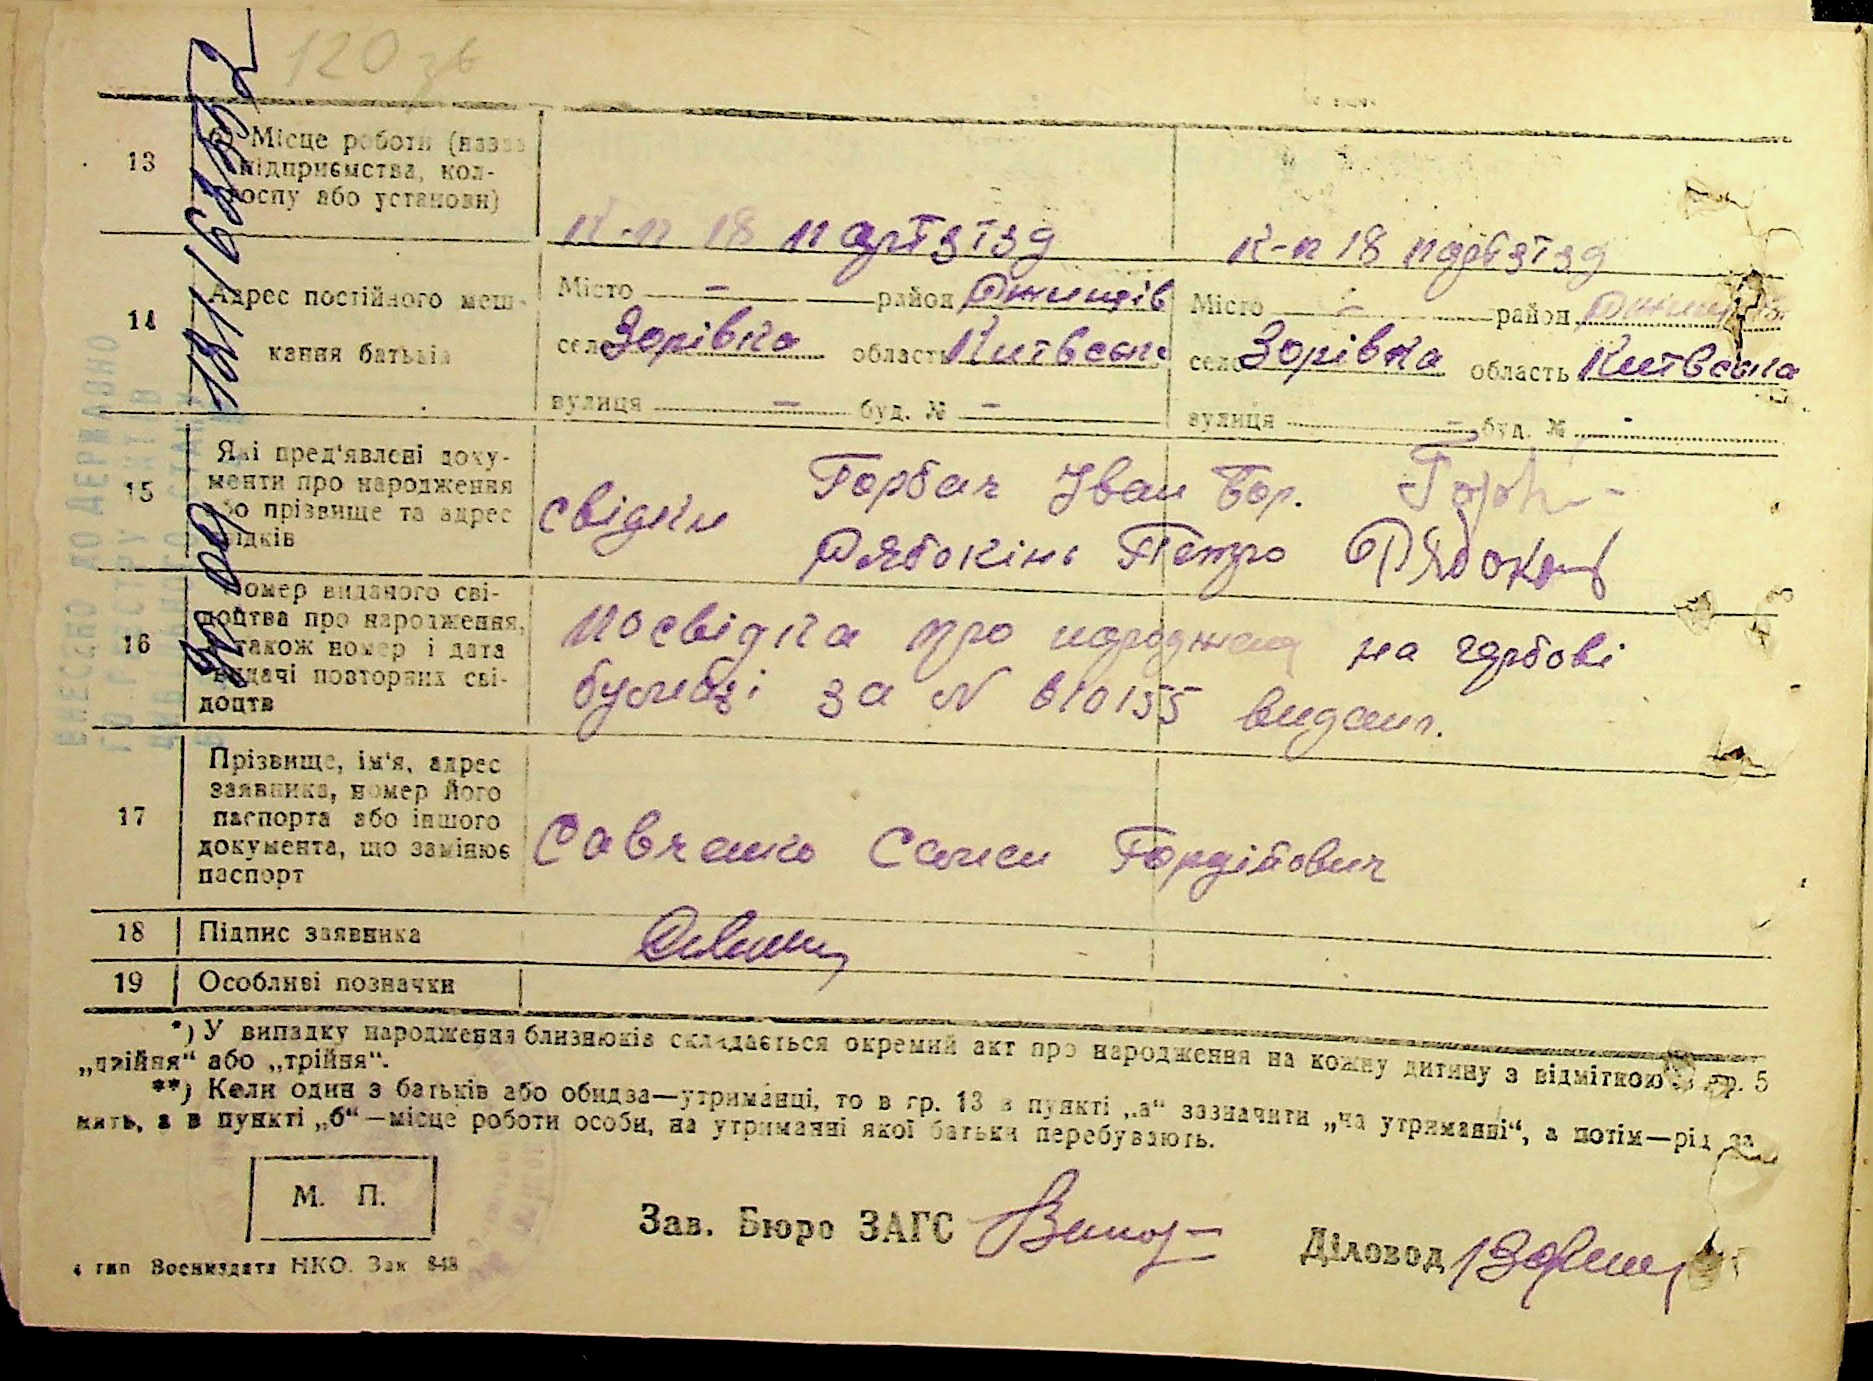 120 зв
13
б) Місце роботи (назва
підприємства, кол-
госпу або установи)
к-п 18 партзїзд
к-п 18 партзїзд
14
Адрес постійного меш-
кання батьків
Місто — район Ржищів
село Зорівка область Київська
вулиця — буд. № —
Місто — район Ржищів
село Зорівка область Київська
вулиця — буд. № -
15
Які пред'явлені доку-
менти про народження
або прізвище та адрес
свідків
свідки Горбач Іван Бор.
Рябокінь Петро
16
Номер виданого сві-
доцтва про народження,
а також номер і дата
видачі повторних сві-
доцтв
посвідка про народжен на гербові
бумазі за № 610155 видана.
17
Прізвище, ім'я, адрес
заявника, номер його
паспорта або іншого
документа, що замінює
паспорт
Савченко Самсон Гордійович
18
Підпис заявника
19
Особливі позначки
*) У випадку народження близнюків складається окремий акт про народження на кожну дитину з відміткою в гр. 5
„двійня“ або „трійня“.
**) Коли один з батьків або обидва—утриманці, то в гр. 13 в пункті „а“ зазначити „на утриманні“, а потім—рід за
нять, а в пункті „б“—місце роботи особи, на утриманні якої батьки перебувають.
М. П.
Зав. Бюро ЗАГС
Діловод
4 тип Воениздата НКО. Зак 848
ВНЕСЕНО ДО ДЕРЖАВНО
ГО РЕЄСТРУ АКТІВ